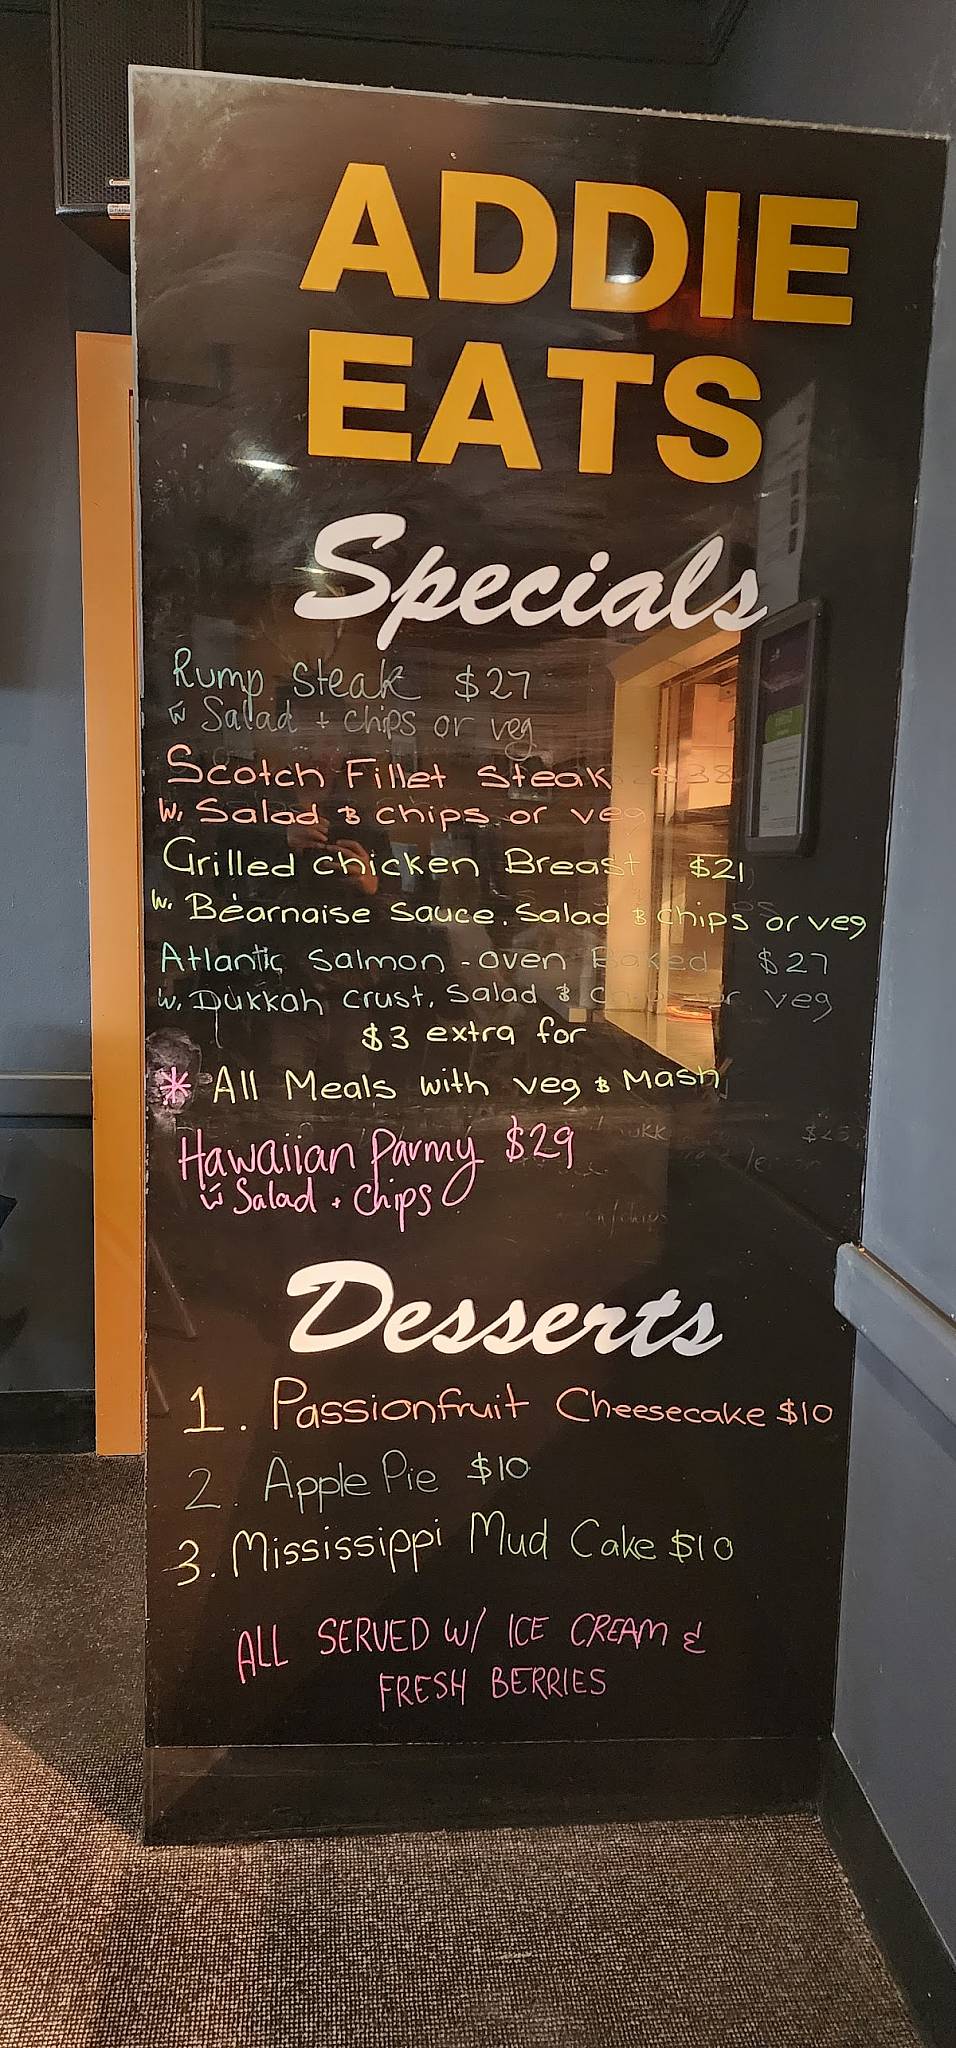 ADDIE
EATS
Specials
Rump Steak $27
w Salad + chips or veg
Scotch Fillet Steak $38
w. Salad & chips or veg
Grilled chicken Breast $21
w. Béarnaise sauce. Salad & chips or veg
Atlantic Salmon - oven Baked $27
w. Dukkah crust. Salad & chips or veg
$3 extra for
* All Meals with veg & Mash
Hawaiian Parmy $29
w Salad + Chips
Desserts
1. Passionfruit Cheesecake $10
2. Apple Pie $10
3. Mississippi Mud Cake $10
ALL SERVED W/ ICE CREAM &
FRESH BERRIES